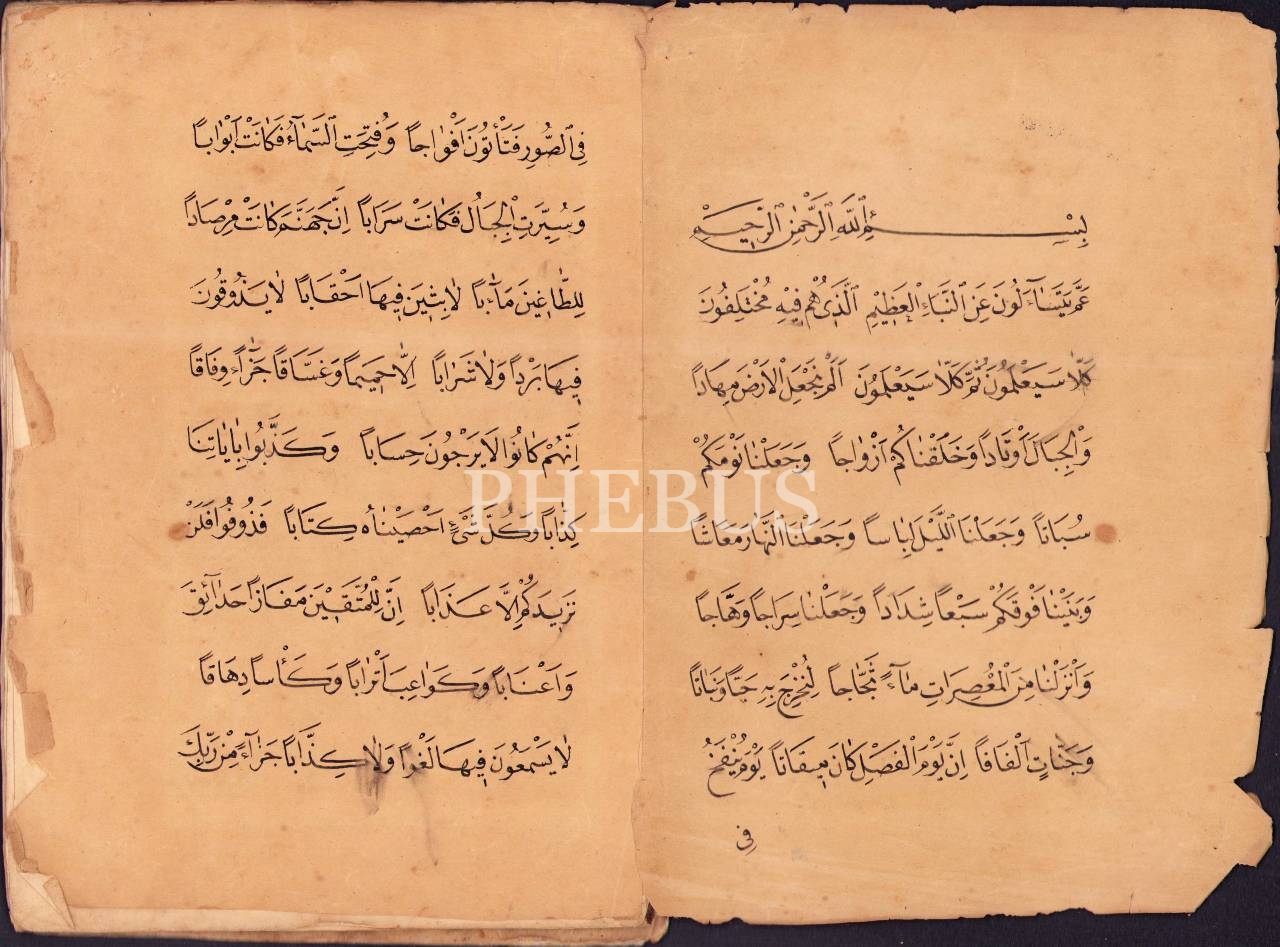 بِسْمِ اللّٰهِ الرَّحْمٰنِ الرَّحِيمِ
عَمَّ يَتَسَاءَلُونَ عَنِ النَّبَاءِ الْعَظِيمِ اَلَّذِى هُمْ فِيهِ مُخْتَلِفُونَ
كَلَّا سَيَعْلَمُونَ ثُمَّ كَلَّا سَيَعْلَمُونَ اَلَمْ نَجْعَلِ الْاَرْضَ مِهَاداً
وَالْجِبَالَ اَوْتَاداً وَخَلَقْنَاكُمْ اَزْوَاجاً وَجَعَلْنَا نَوْمَكُمْ
سُبَاتاً وَجَعَلْنَا اللَّيْلَ لِبَاساً وَجَعَلْنَا النَّهَارَ مَعَاشاً
وَبَنَيْنَا فَوْقَكُمْ سَبْعاً شِدَاداً وَجَعَلْنَا سِرَاجاً وَهَّاجاً
وَاَنْزَلْنَا مِنَ الْمُعْصِرَاتِ مَاءً ثَجَّاجاً لِنُخْرِجَ بِهِ حَبًّا وَنَبَاتاً
وَجَنَّاتٍ اَلْفَافاً اِنَّ يَوْمَ الْفَصْلِ كَانَ مِيقَاتاً يَوْمَ يُنْفَخُ
فِى
فِى الصُّورِ فَتَأْتُونَ اَفْوَاجاً وَفُتِحَتِ السَّمَاءُ فَكَانَتْ اَبْوَاباً
وَسُيِّرَتِ الْجِبَالُ فَكَانَتْ سَرَاباً اِنَّ جَهَنَّمَ كَانَتْ مِرْصَاداً
لِلطَّاغِينَ مَاٰباً لَابِثِينَ فِيهَا اَحْقَاباً لَا يَذُوقُونَ
فِيهَا بَرْداً وَلَا شَرَاباً اِلَّا حَمِيماً وَغَسَّاقاً جَزَاءً وِفَاقاً
اِنَّهُمْ كَانُوا لَا يَرْجُونَ حِسَاباً وَكَذَّبُوا بِاٰيَاتِنَا
كِذَّاباً وَكُلَّ شَىْءٍ اَحْصَيْنَاهُ كِتَاباً فَذُوقُوا فَلَنْ
نَزِيدَكُمْ اِلَّا عَذَاباً اِنَّ لِلْمُتَّقِينَ مَفَازاً حَدَائِقَ
وَاَعْنَاباً وَكَوَاعِبَ اَتْرَاباً وَكَأْساً دِهَاقاً
لَا يَسْمَعُونَ فِيهَا لَغْواً وَلَا كِذَّاباً جَزَاءً مِنْ رَبِّكَ
PHEBUS